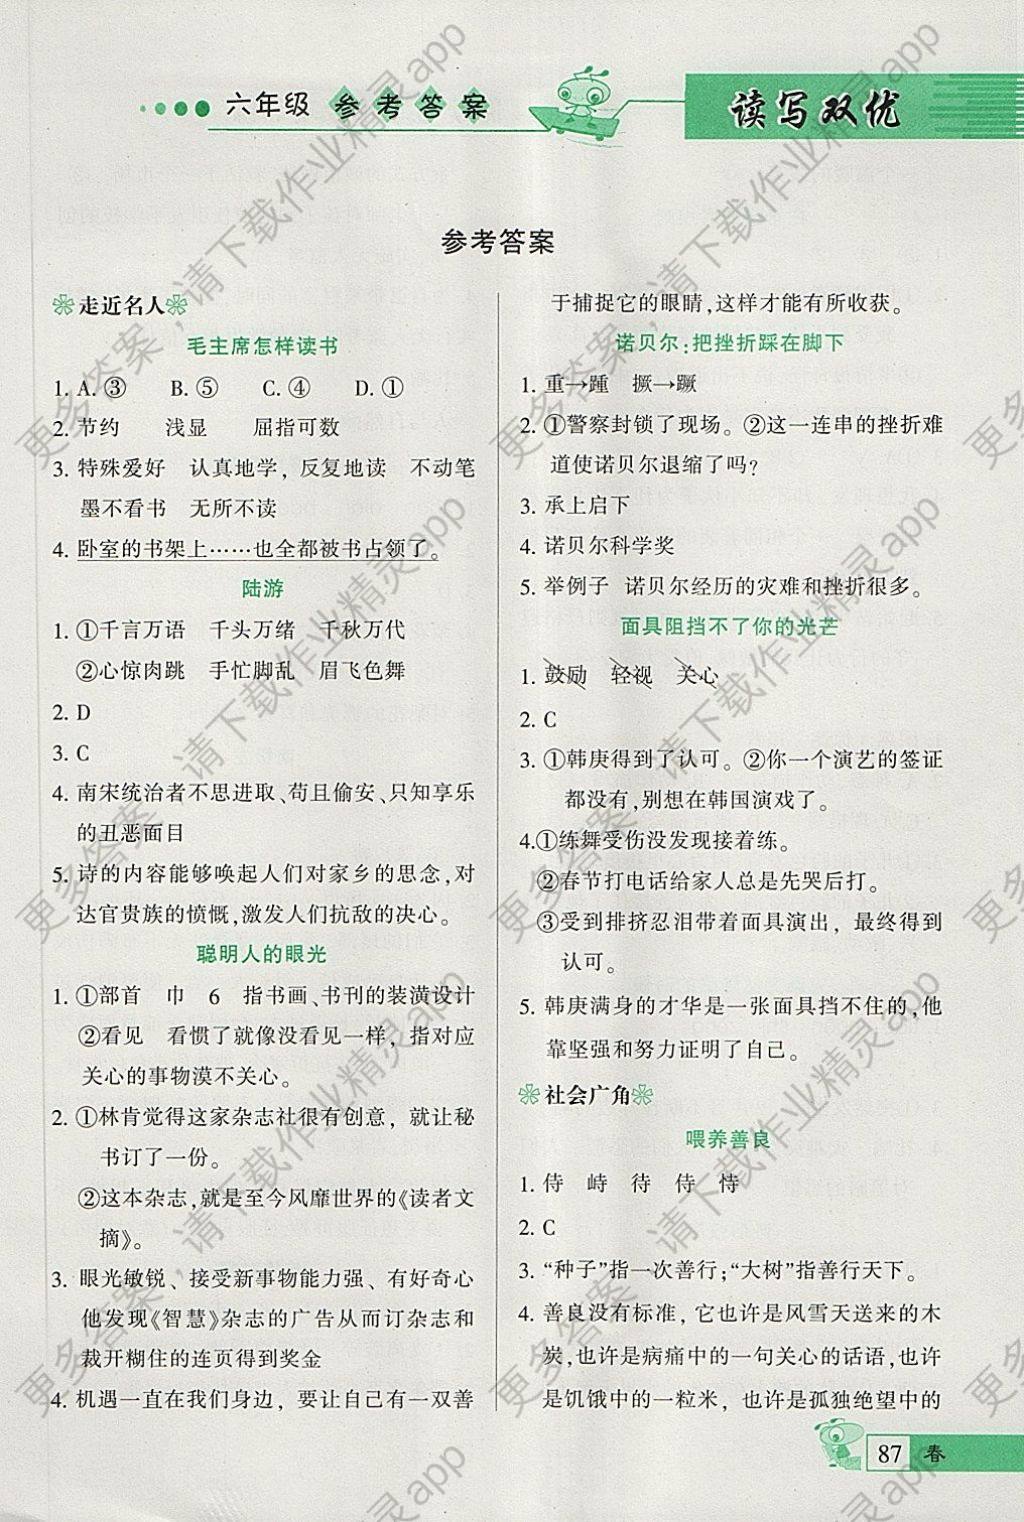 六年级 参考答案
读写双优
参考答案
走近名人
毛主席怎样读书
1. A. ③ B. ⑤ C. ④ D. ①
2. 节约 浅显 屈指可数
3. 特殊爱好 认真地学，反复地读 不动笔
墨不看书 无所不读
4. 卧室的书架上……也全都被书占领了。
陆游
1. ①千言万语 千头万绪 千秋万代
②心惊肉跳 手忙脚乱 眉飞色舞
2. D
3. C
4. 南宋统治者不思进取、苟且偷安、只知享乐
的丑恶面目
5. 诗的内容能够唤起人们对家乡的思念，对
达官贵族的愤慨，激发人们抗敌的决心。
聪明人的眼光
1. ①部首 巾 6 指书画、书刊的装潢设计
②看见 看惯了就像没看见一样，指对应
关心的事物漠不关心。
2. ①林肯觉得这家杂志社很有创意，就让秘
书订了一份。
②这本杂志，就是至今风靡世界的《读者文
摘》。
3. 眼光敏锐、接受新事物能力强、有好奇心
他发现《智慧》杂志的广告从而订杂志和
裁开糊住的连页得到奖金
4. 机遇一直在我们身边，要让自己有一双善
于捕捉它的眼睛，这样才能有所收获。
诺贝尔：把挫折踩在脚下
1. 重→踵 撅→蹶
2. ①警察封锁了现场。②这一连串的挫折难
道使诺贝尔退缩了吗？
3. 承上启下
4. 诺贝尔科学奖
5. 举例子 诺贝尔经历的灾难和挫折很多。
面具阻挡不了你的光芒
1. 鼓励 轻视 关心
2. C
3. ①韩庚得到了认可。②你一个演艺的签证
都没有，别想在韩国演戏了。
4.①练舞受伤没发现接着练。
②春节打电话给家人总是先哭后打。
③受到排挤忍泪带着面具演出，最终得到
认可。
5. 韩庚满身的才华是一张面具挡不住的，他
靠坚强和努力证明了自己。
社会广角
喂养善良
1. 侍 峙 待 侍 恃
2. C
3. “种子”指一次善行；“大树”指善行天下。
4. 善良没有标准，它也许是风雪天送来的木
炭，也许是病痛中的一句关心的话语，也许
是饥饿中的一粒米，也许是孤独绝望中的
87 春
更多答案，请下载作业精灵app
更多答案，请下载作业精灵app
更多答案，请下载作业精灵app
更多答案，请下载作业精灵app
更多答案，请下载作业精灵app
更多答案，请下载作业精灵app